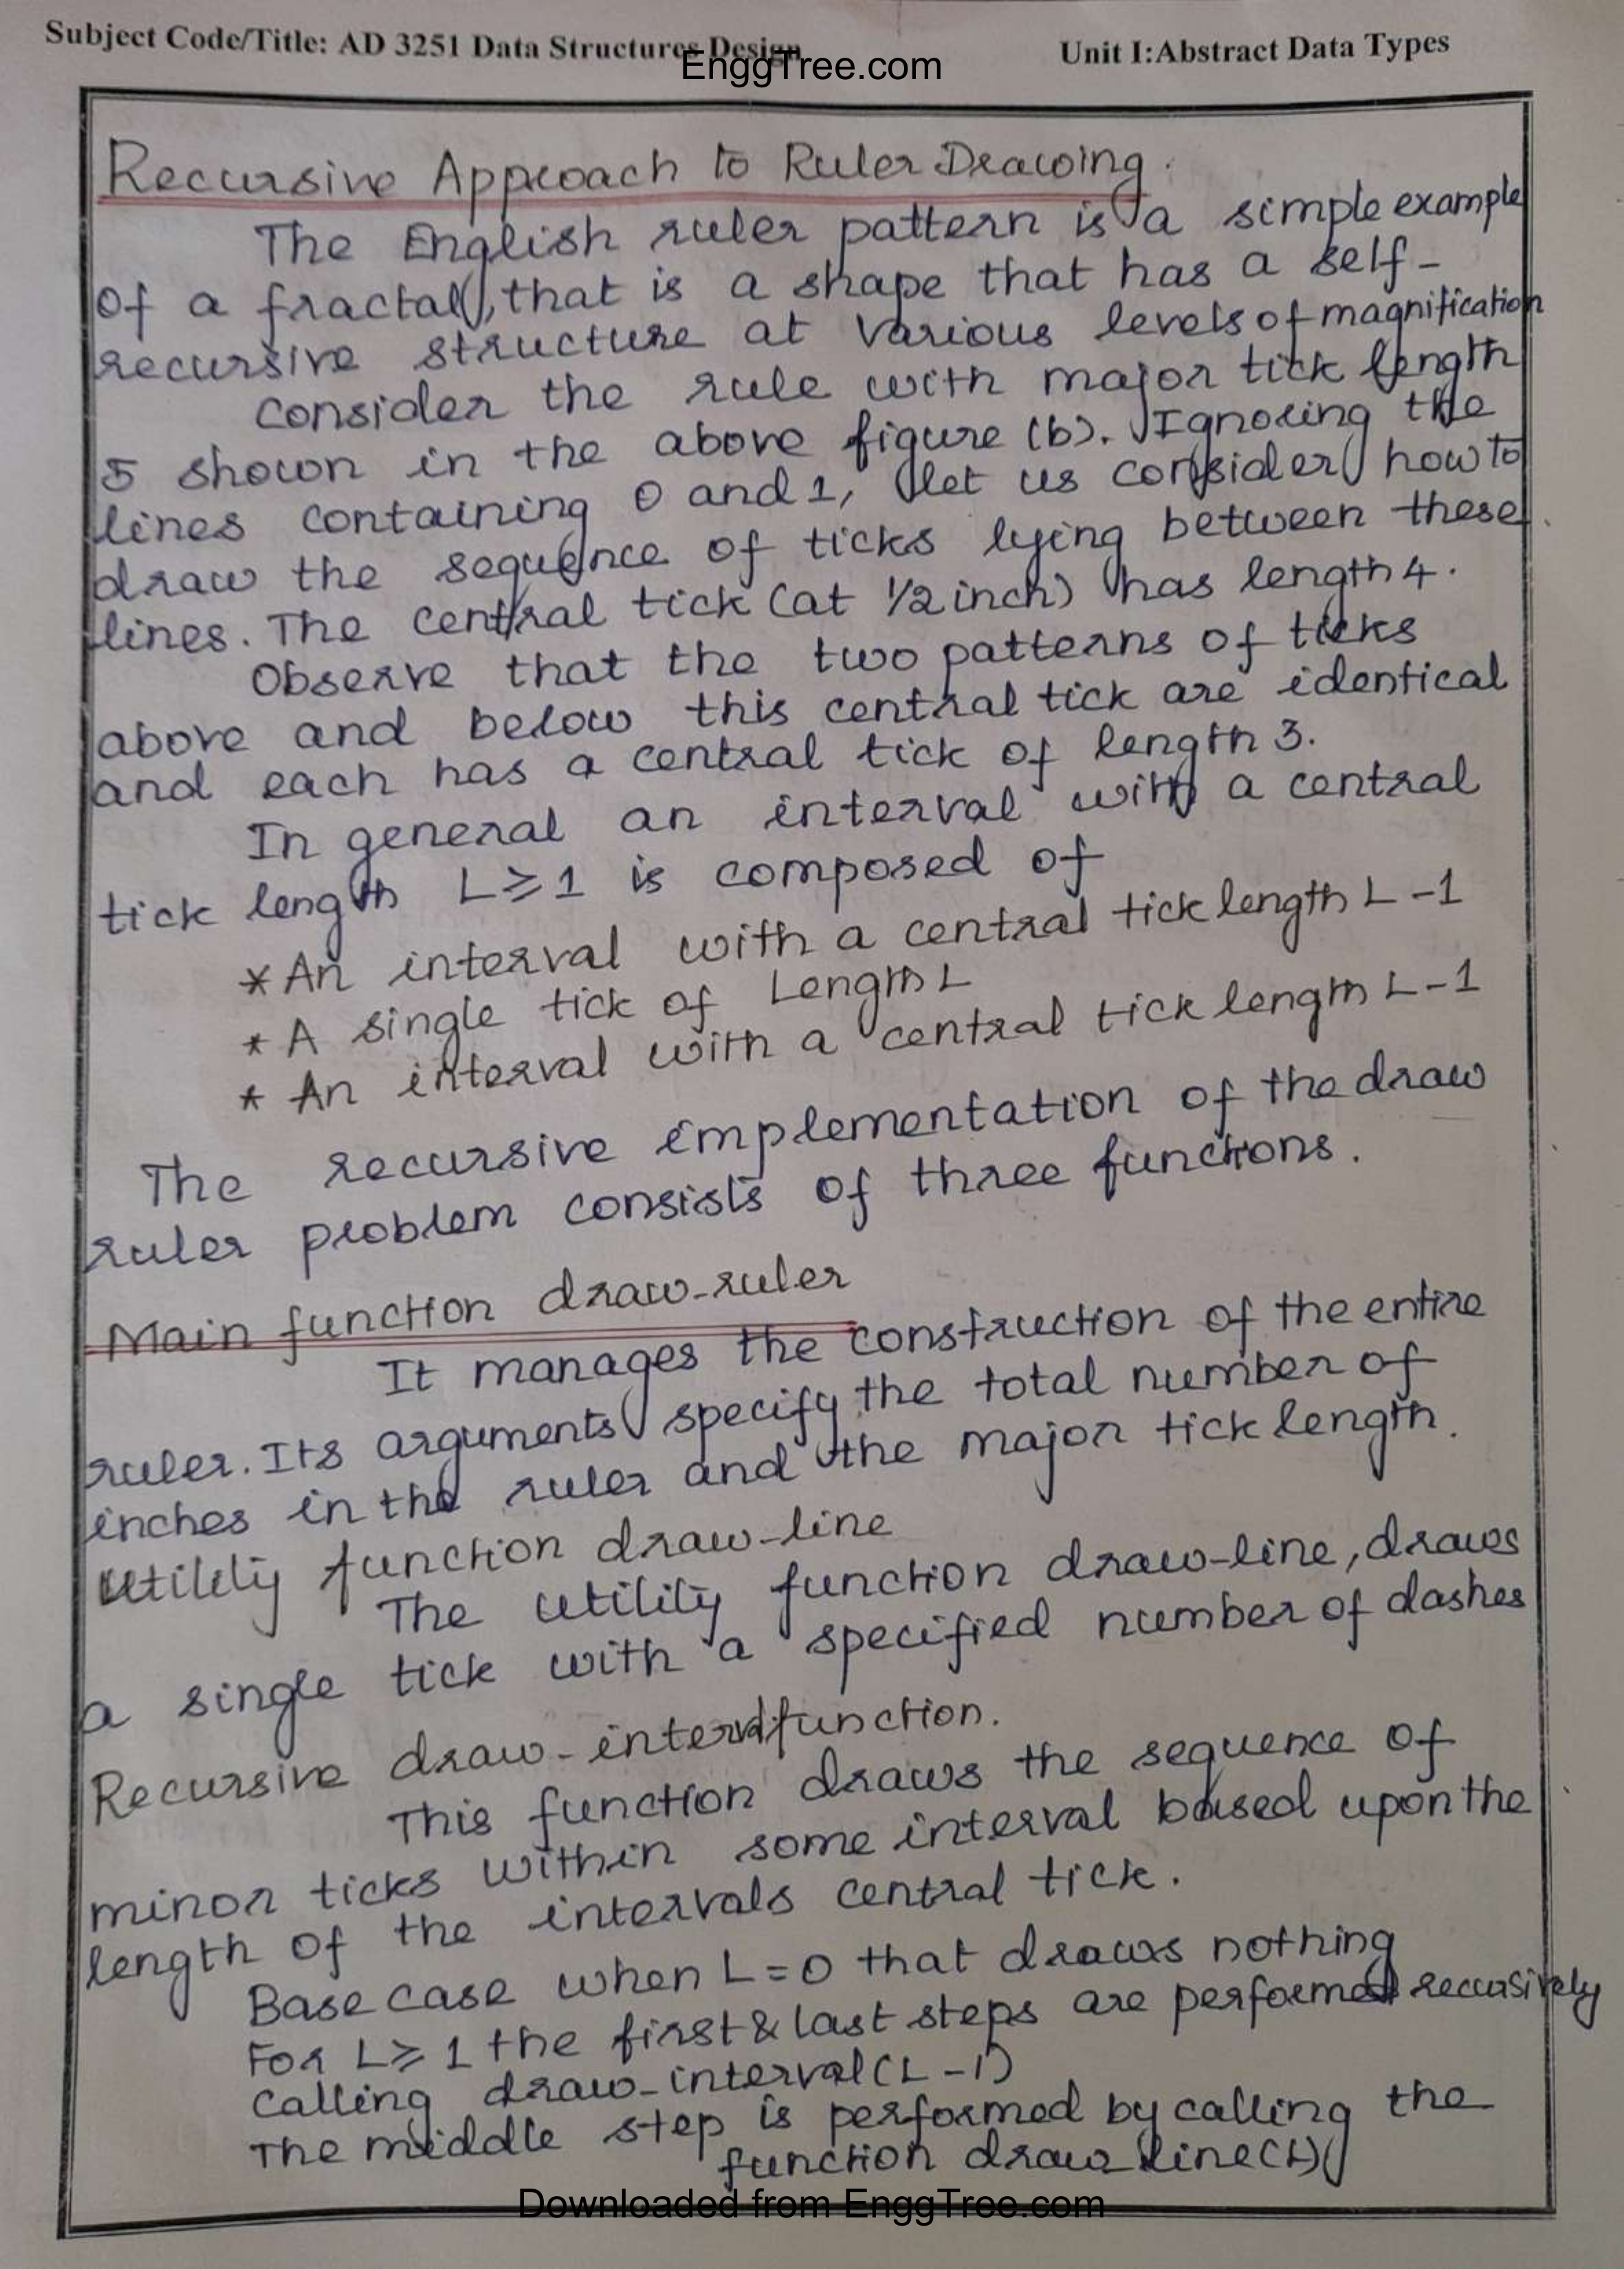 Subject Code/Title: AD 3251 Data Structures Design
Unit I:Abstract Data Types
EnggTree.com
Recursive Approach to Ruler Drawing.
The English ruler pattern is a simple example
of a fractal, that is a shape that has a self-
recursive structure at various levels of magnification
Consider the rule with major tick length
5 shown in the above figure (b). Ignoring the
lines containing 0 and 1, let us consider how to
draw the sequence of ticks lying between these
lines. The central tick (at 1/2 inch) has length 4.
Observe that the two patterns of ticks
above and below this central tick are identical
and each has a central tick of length 3.
In general an interval with a central
tick length L≥1 is composed of
* An interval with a central tick length L-1
* A single tick of Length L
* An interval with a central tick length L-1
The recursive implementation of the draw
ruler problem consists of three functions.
Main function draw-ruler
It manages the construction of the entire
ruler. Its arguments specify the total number of
inches in the ruler and the major tick length.
Utility function draw-line
The utility function draw-line, draws
a single tick with a specified number of dashes
Recursive draw-interval function.
This function draws the sequence of
minor ticks within some interval based upon the
length of the intervals central tick.
Base case when L=0 that draws nothing
For L≥1 the first & last steps are performed recursively
calling draw-interval(L-1)
The middle step is performed by calling the
function draw_line(L)
Downloaded from EnggTree.com